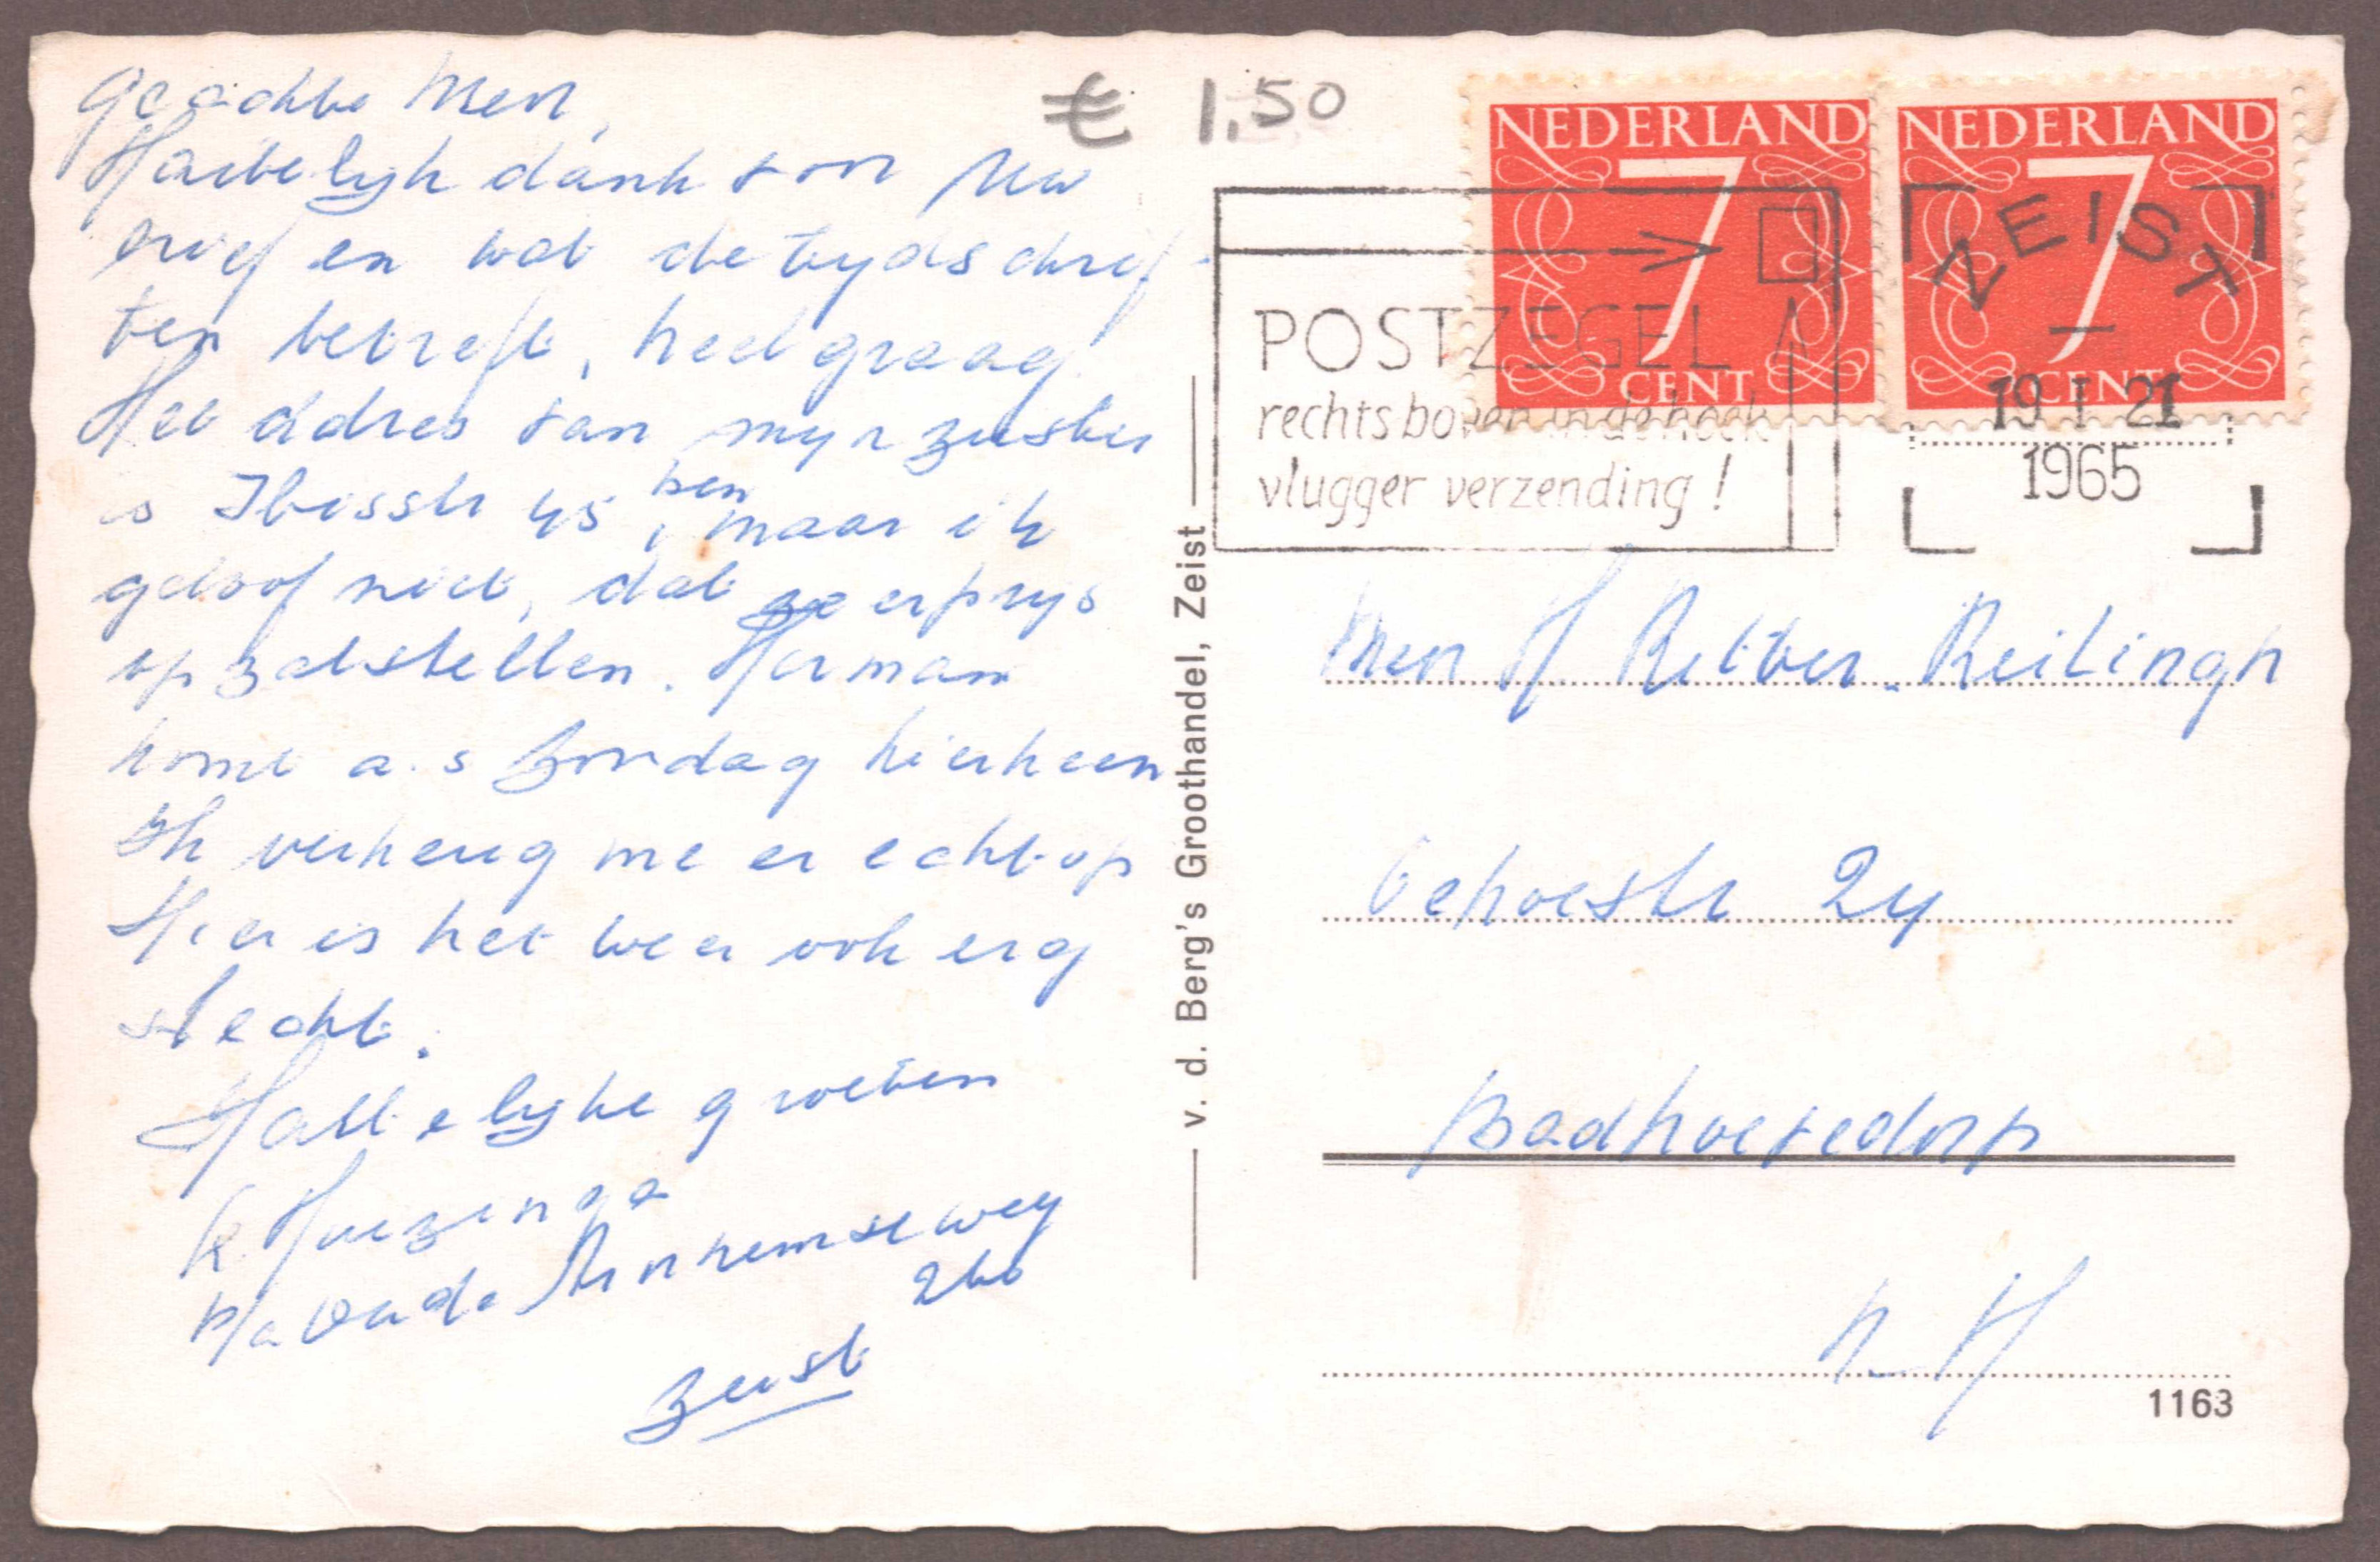 Geachte Men,
Hartelijk dank von Uw
brief en wat de tijdschrif-
ten betreft, heel graag
Het adres van mijn zuster
is Ibisstr 45, maar ik
ben
geloof niet, dat ze erprijs
op zal stellen. Herman
komt a.s Zondag hierheen
Ik verheug me er echt op
Hier is het weer ook erg
slecht.
Hartelijke groeten
K. Huezinga
p/a Oude Arnhemseweg
260
Zeist
€ 1.50
NEDERLAND
7
CENT
NEDERLAND
7
CENT
POSTZEGEL
rechts boven in de hoek
vlugger verzending!
ZEIST
19 I 21
1965
v. d. Berg's Groothandel, Zeist
Men H Ritter-Reilingh
24
Badhoevedorp
N-H
1163